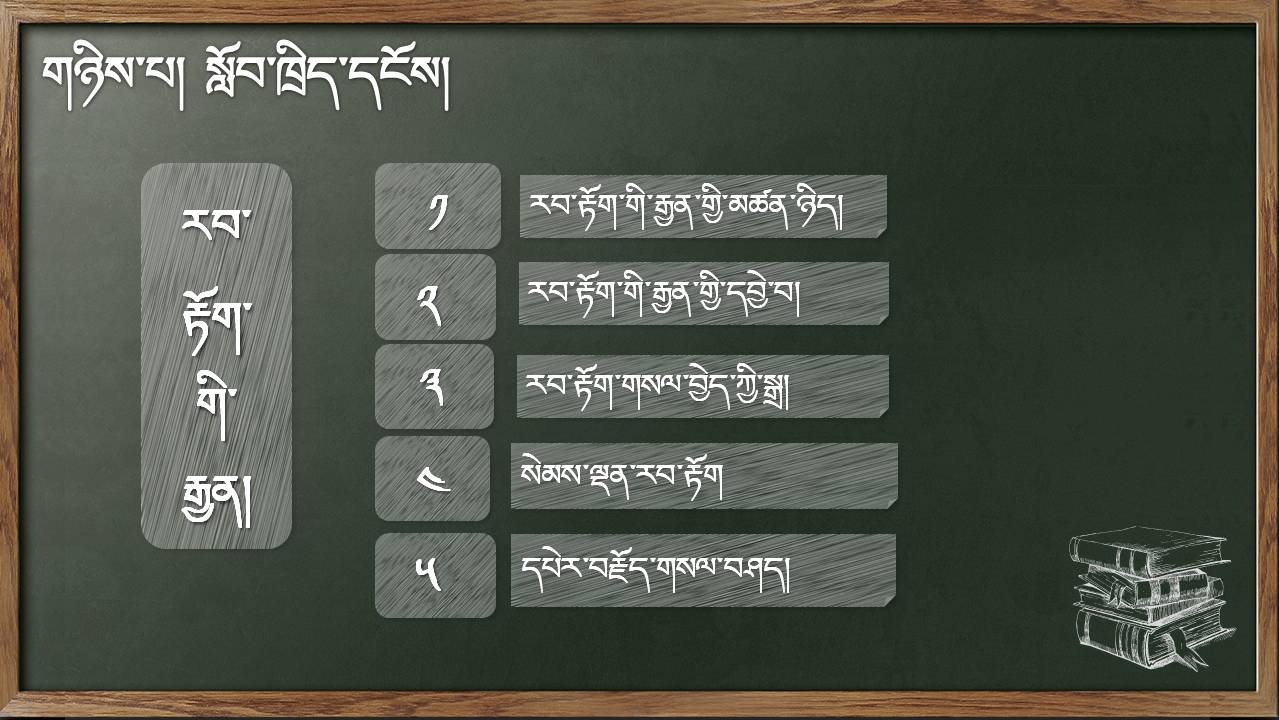 གཉིས་པ། སློབ་ཁྲིད་དངོས།
རབ་
རྟོག་
གི་
རྒྱན།
༡
རབ་རྟོག་གི་རྒྱན་གྱི་མཚན་ཉིད།
༢
རབ་རྟོག་གི་རྒྱན་གྱི་དབྱེ་བ།
༣
རབ་རྟོག་གསལ་བྱེད་ཀྱི་སྒྲ།
༤
སེམས་ལྡན་རབ་རྟོག
༥
དཔེར་བརྗོད་གསལ་བཤད།